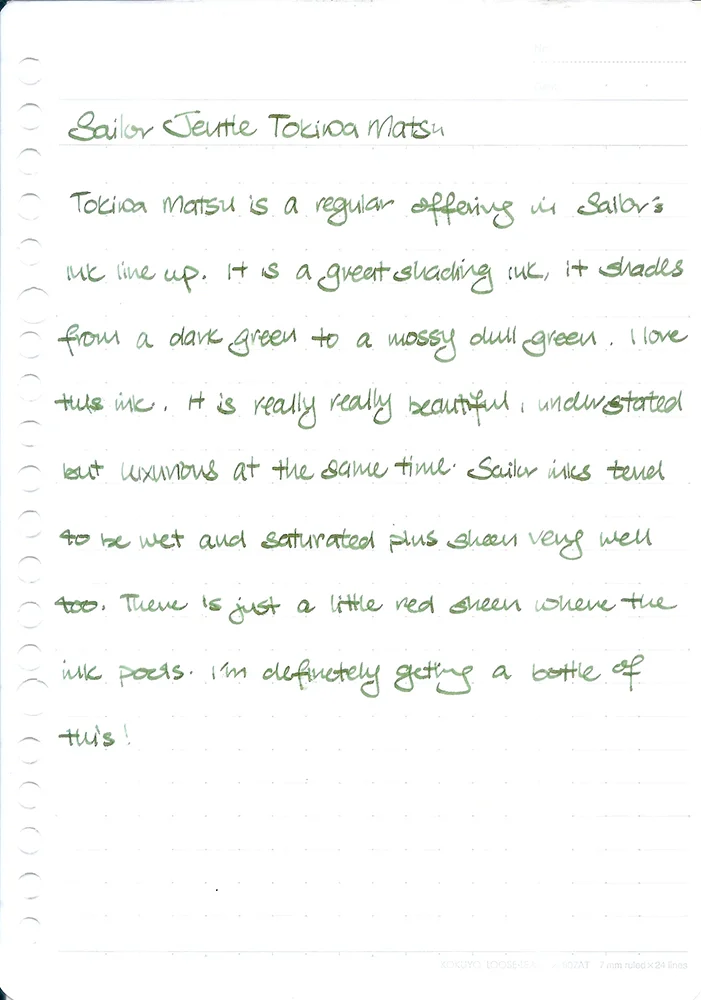 Sailor Jentle Tokiwa Matsu
Tokiwa Matsu is a regular offering in Sailor's
ink line up. It is a great shading ink, it shades
from a dark green to a mossy dull green. I love
this ink. It is really really beautiful, understated
but luxurious at the same time. Sailor inks tend
to be wet and saturated plus sheen very well
too. There is just a little red sheen where the
ink pools. I'm definetely getting a bottle of
this!
7 mm ruled × 24 lines